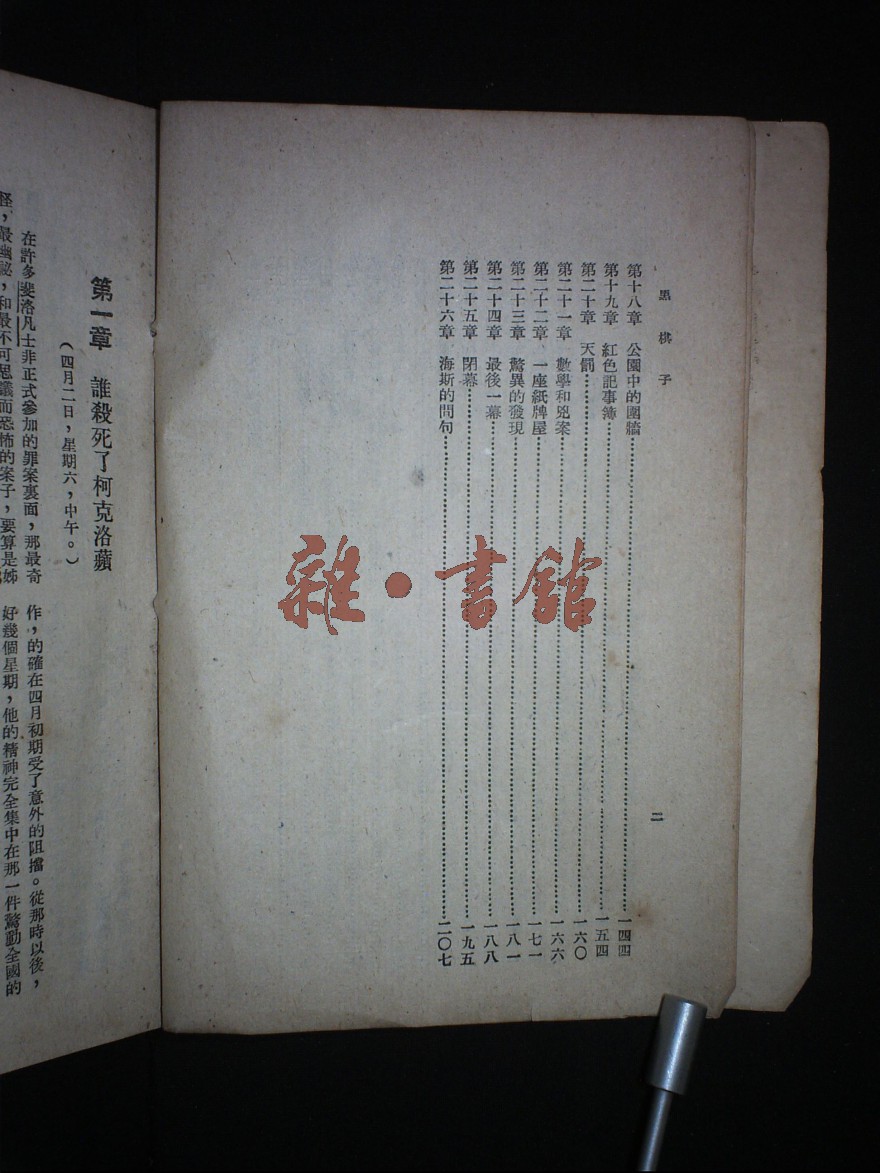 黑棋子
二
第十八章 公園中的圍牆 一四四
第十九章 紅色記事簿 一五四
第二十章 天罰 一六〇
第二十一章 數學和兇案 一六六
第二十二章 一座紙牌屋 一七一
第二十三章 驚異的發現 一八一
第二十四章 最後一幕 一八八
第二十五章 閉幕 一九五
第二十六章 海斯的問句 二〇七
雜·書館
第一章 誰殺死了柯克洛蘋
(四月二日,星期六,中午。)
在許多斐洛凡士非正式參加的罪案裏面,那最奇
怪,最幽秘,和最不可思議而恐怖的案子,要算是姊
作,的確在四月初期受了意外的阻擋。從那時以後,
好幾個星期,他的精神完全集中在那一件驚動全國的